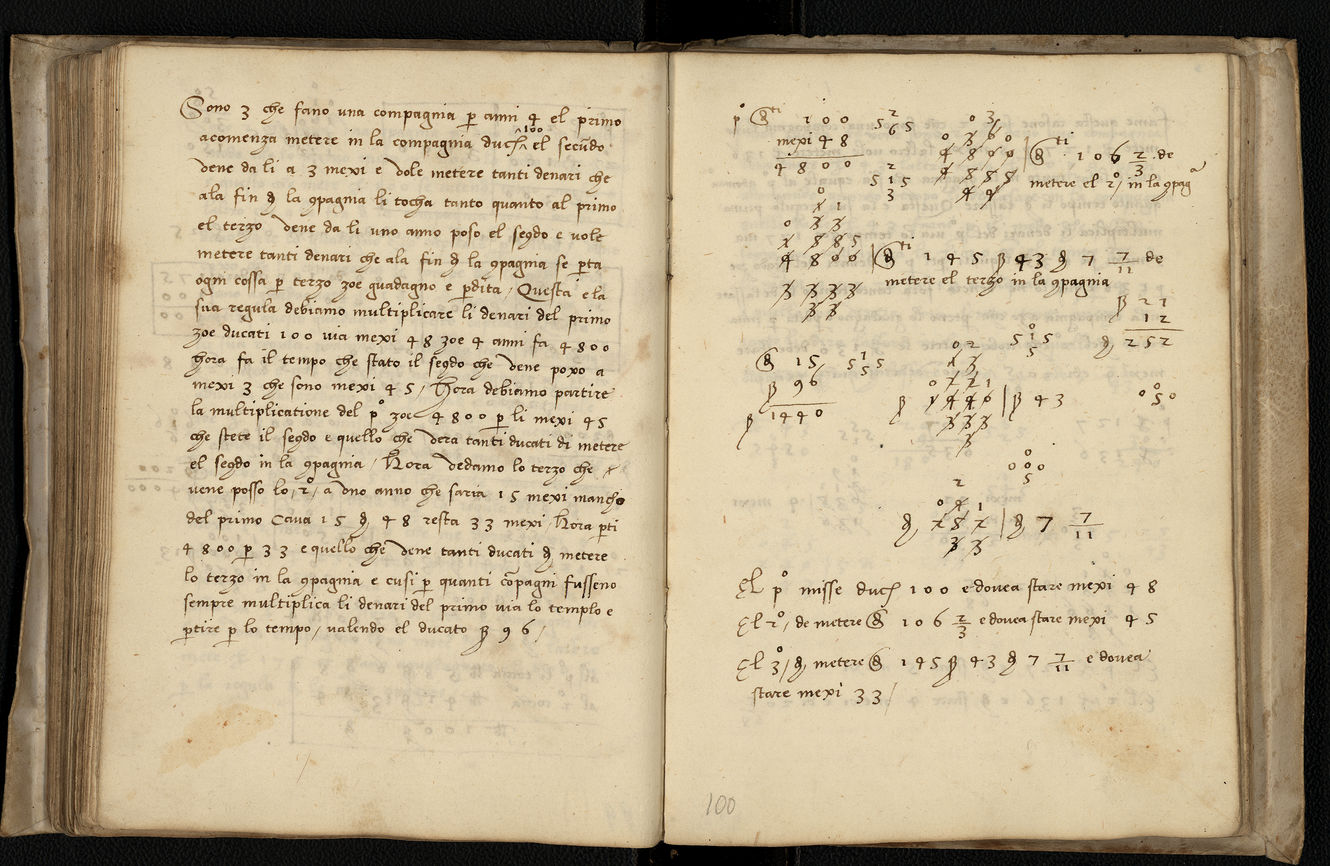 Sono 3 che fano una compagnia p anni 4 el primo
acomenza metere in la compagnia duc^ti 100 el secũdo
dene da li a 3 mexi e dole metere tanti denari che
ala fin d la 9pagnia li tocha tanto quanto al primo
el terzo dene da li uno anno poso el segdo e vole
metere tanti denari che ala fin d la 9pagnia se pta
ogni cossa p terzo zoe guadagno e pdita / Questa e la
sua regula debiamo multiplicare li denari del primo
zoe ducati 100 via mexi 48 zoe 4 anni fa 4800
hora fa il tempo che stato il segdo che dene poxo a
mexi 3 che sono mexi 45 / Hora debiamo partire
la multiplicatione del p° zoe 4800 p li mexi 45
che stete il segdo e quello che dera tanti ducati di metere
el segdo in la 9pagnia / Hora dedamo lo terzo che
vene posso lo / 2° / a dno anno che saria 15 mexi mancho
del primo Cava 15 d 48 resta 33 mexi / Hora pti
4800 p 33 e quello che dene tanti ducati d metere
lo terzo in la 9pagnia e cusi p quanti cõpagni fusseno
sempre multiplica li denari del primo via lo templo e
ptire p lo tempo / valendo el ducato β 96 /
p° 100
mexi 48
4800
2
5 6 5
2
5 1 5
3
106 2/3 de
metere el 2° in la 9pag^a
145 β 43 d 7 7/11 de
metere el terzo in la 9pagnia
β 21
12
d 252
15
β 96
β 1440
β 43
d 7 7/11
El p° misse duc^ti 100 e dovea stare mexi 48
El 2° / de metere 106 2/3 e dovea stare mexi 45
El 3° / d metere 145 β 43 d 7 7/11 e dovea
stare mexi 33 /
100